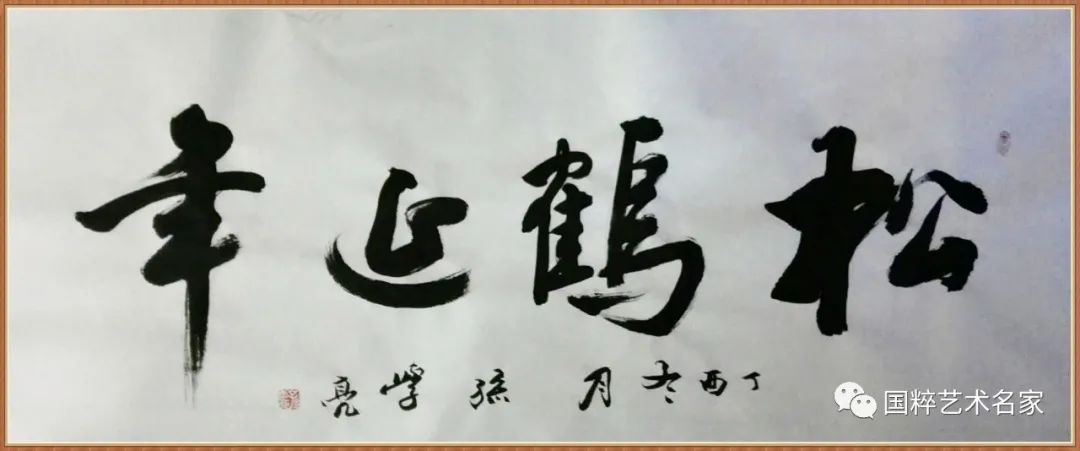 松鶴延年
丁酉冬月 孫學亮
国粹艺术名家